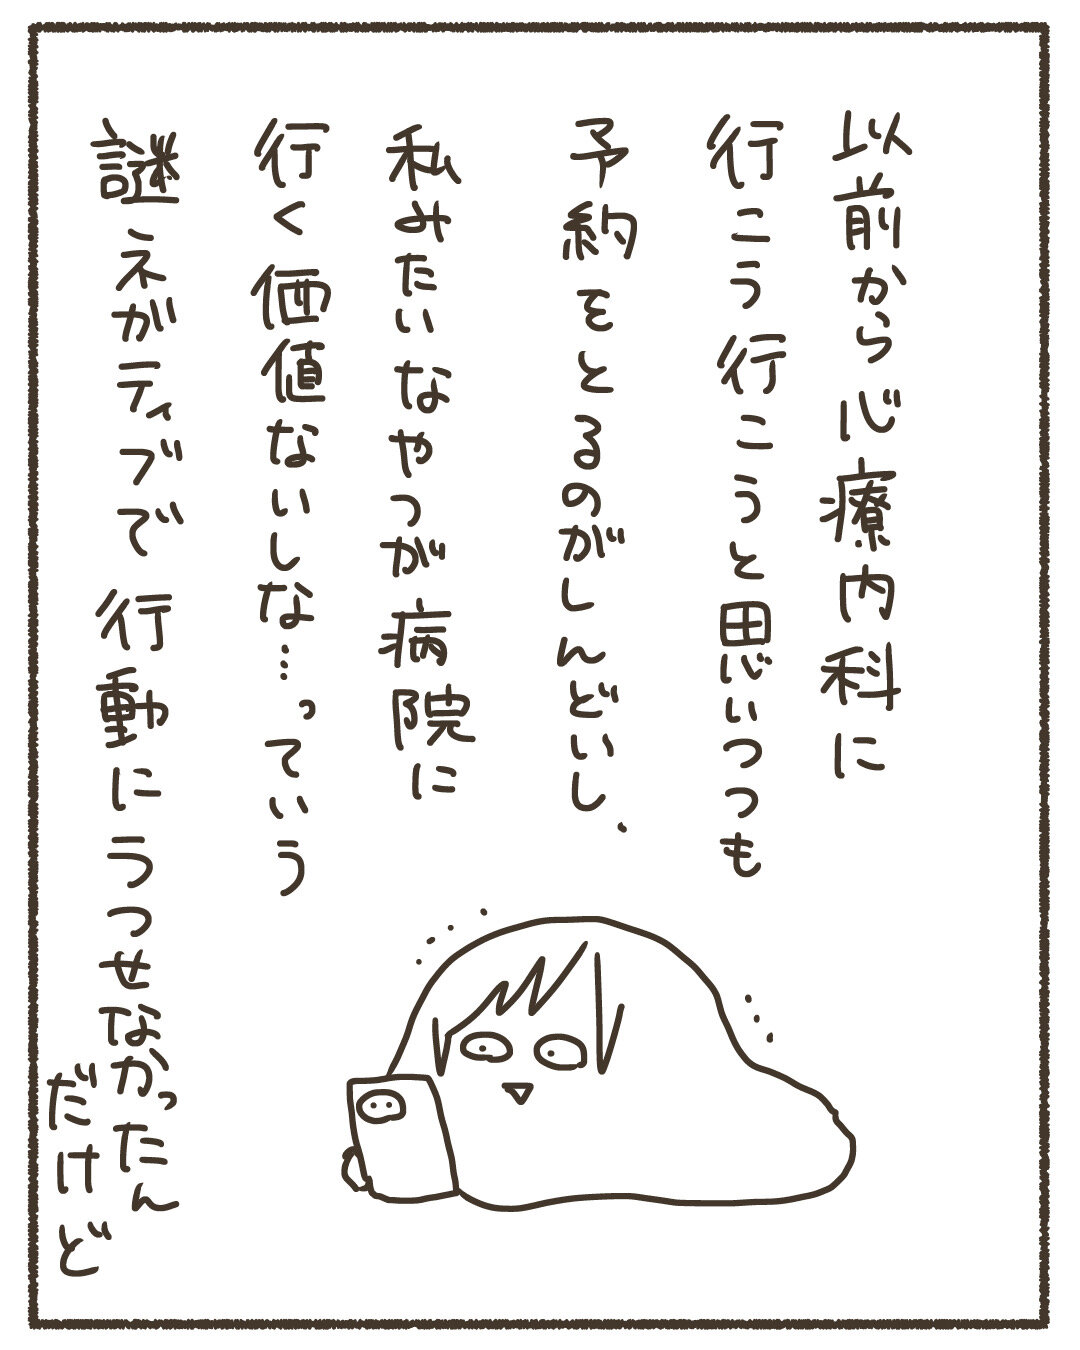 以前から心療内科に
行こう行こうと思いつつも
予約をとるのがしんどいし、
私みたいなやつが病院に
行く価値ないしな…っていう
謎ネガティブで行動にうつせなかったん
だけど